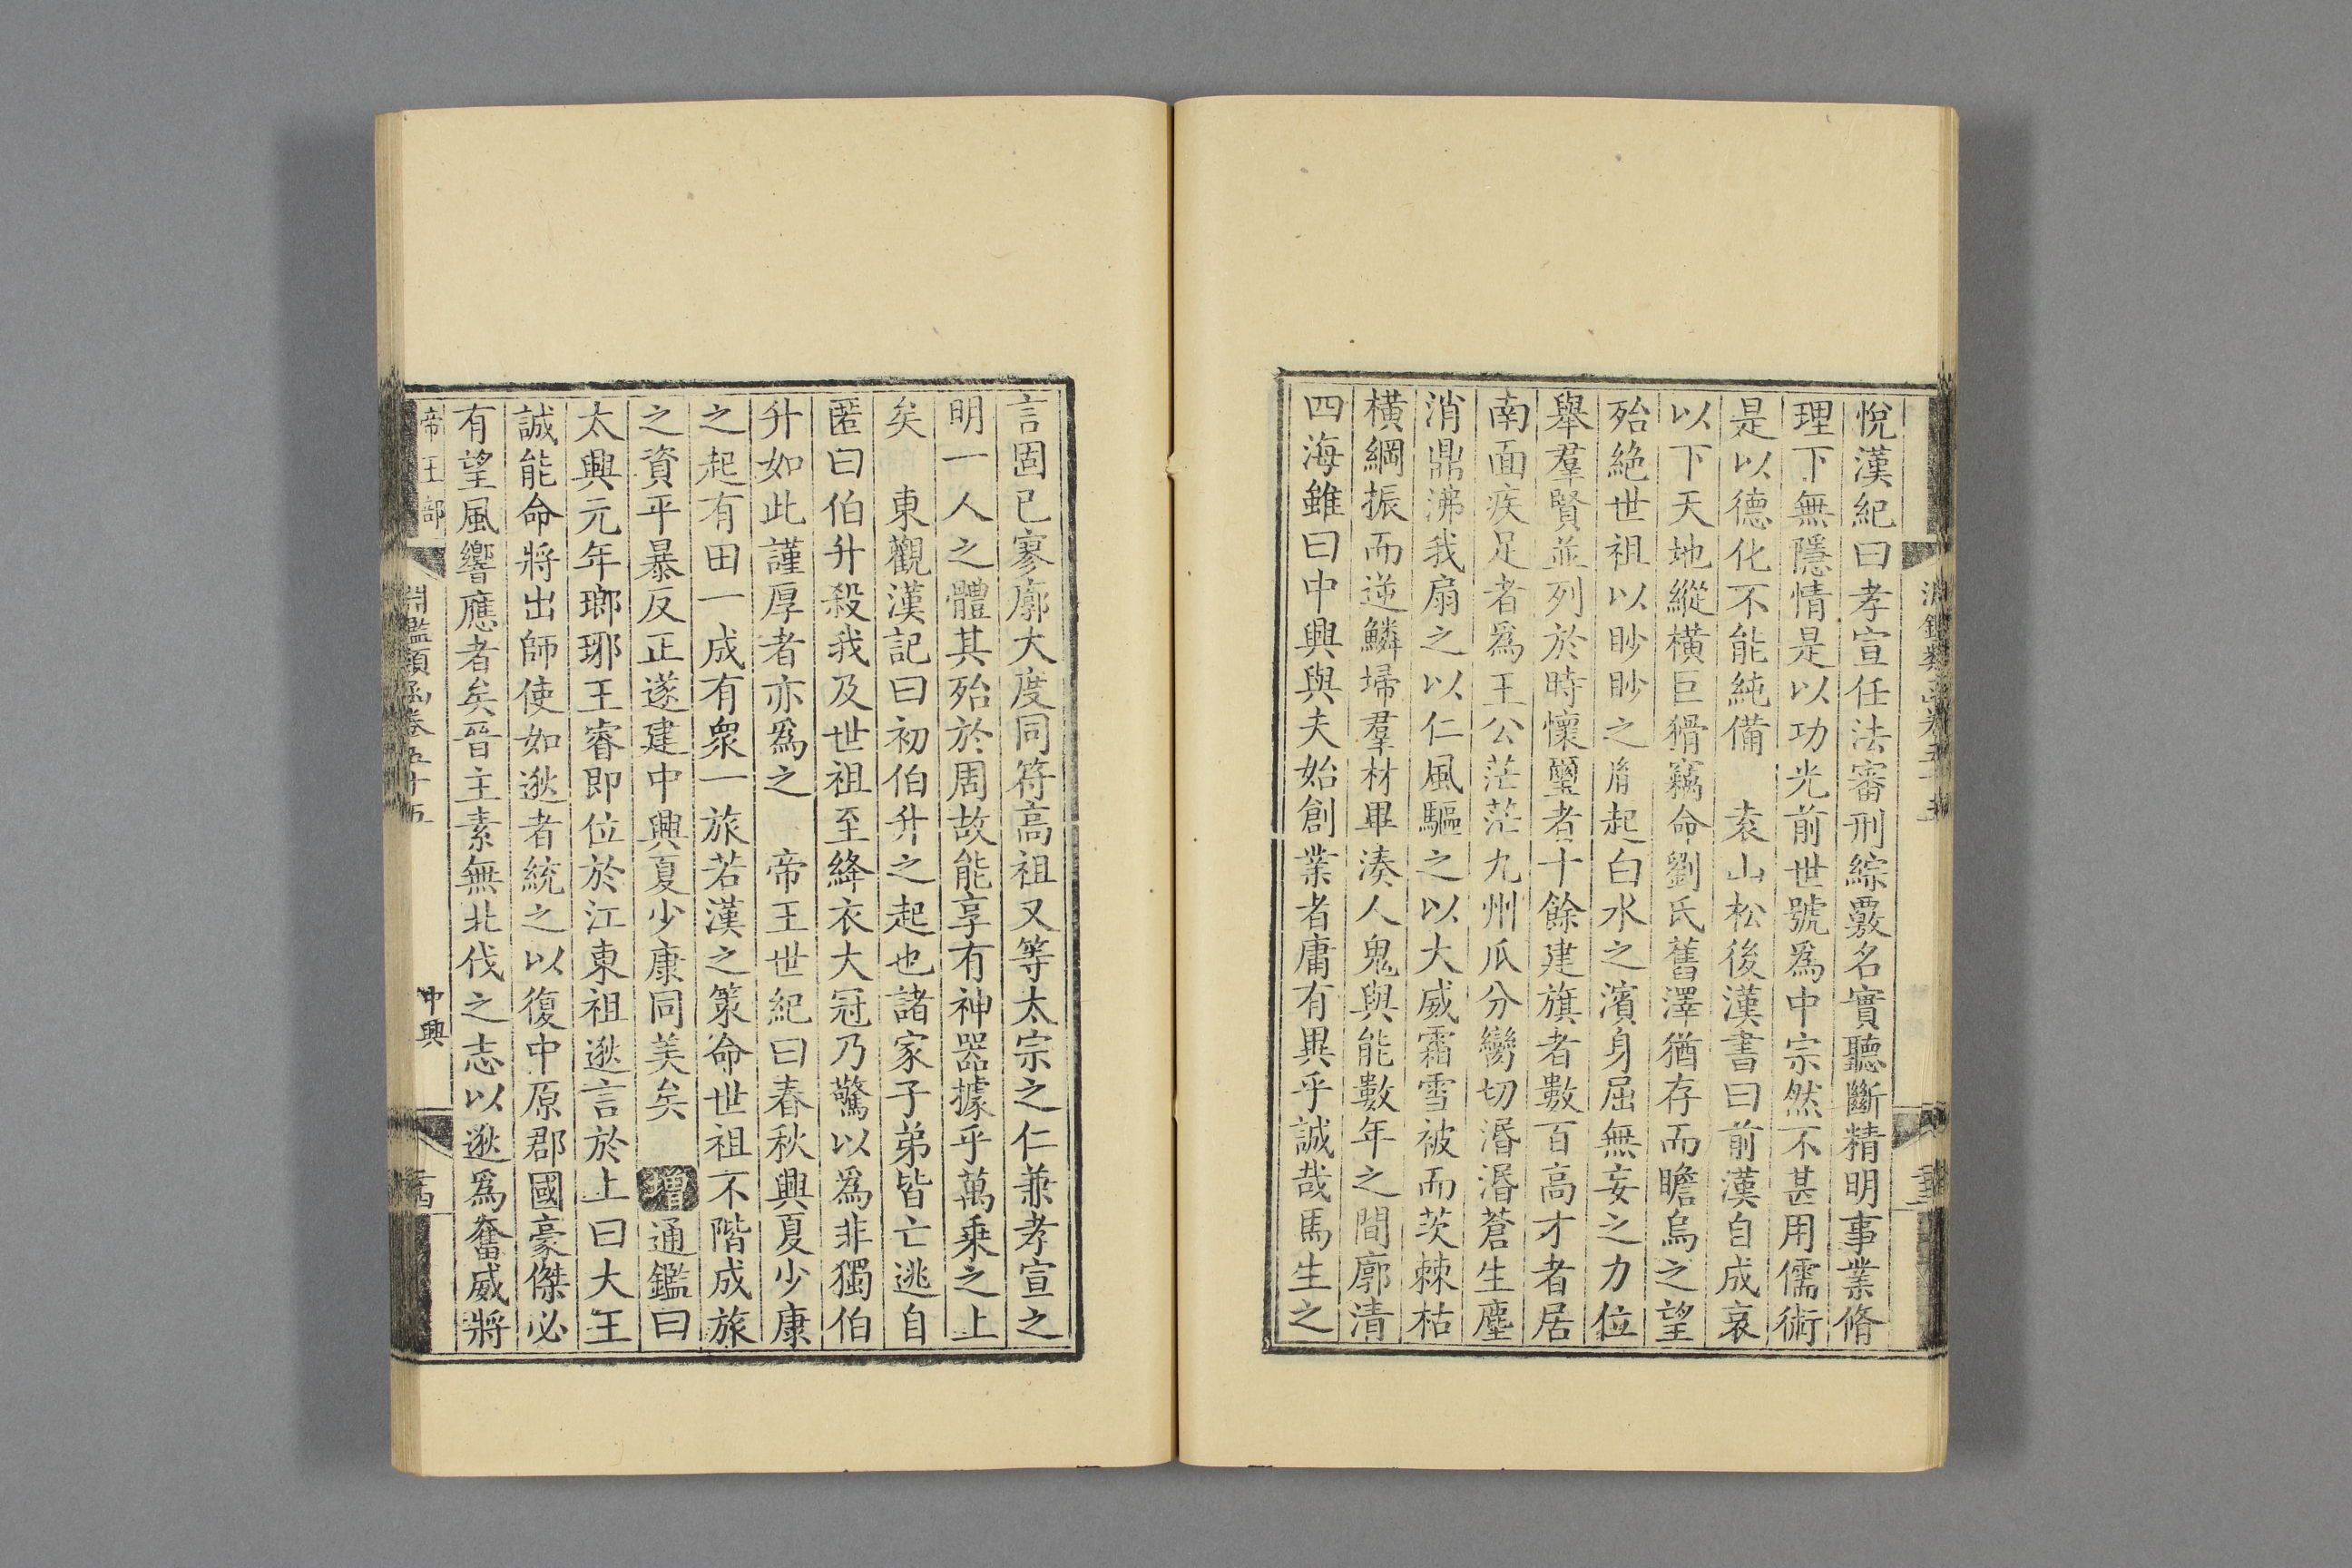 悅漢紀曰孝宣任法審刑綜覈名實聽斷精明事業脩
理下無隱情是以功光前世號爲中宗然不甚用儒術
是以德化不能純備　袁山松後漢書曰前漢自成哀
以下天地縱橫巨猾竊命劉氏舊澤猶存而瞻烏之望
殆絶世祖以眇眇之胄起白水之濱身屈無妄之力位
舉羣賢並列於時懷璽者十餘建旗者數百高才者居
南面疾足者爲王公茫茫九州瓜分臠切湣湣蒼生塵
消鼎沸我扇之以仁風驅之以大威霜雪被而茨棘枯
橫綱振而逆鱗埽羣材畢湊人鬼與能數年之間廓清
四海雖曰中興與夫始創業者庸有異乎誠哉馬生之
言固已寥廓大度同符高祖又等太宗之仁兼孝宣之
明一人之體其殆於周故能享有神器據乎萬乗之上
矣　東觀漢記曰初伯升之起也諸家子弟皆亡逃自
匿曰伯升殺我及世祖至絳衣大冠乃驚以爲非獨伯
升如此謹厚者亦爲之　帝王世紀曰春秋興夏少康
之起有田一成有衆一旅若漢之策命世祖不階成旅
之資平暴反正遂建中興夏少康同美矣　增通鑑曰
太興元年瑯琊王睿即位於江東祖逖言於上曰大王
誠能命將出師使如逖者統之以復中原郡國豪傑必
有望風響應者矣晉主素無北伐之志以逖爲奮威將
帝王部　淵鑑類函卷五十五　中興　三十四